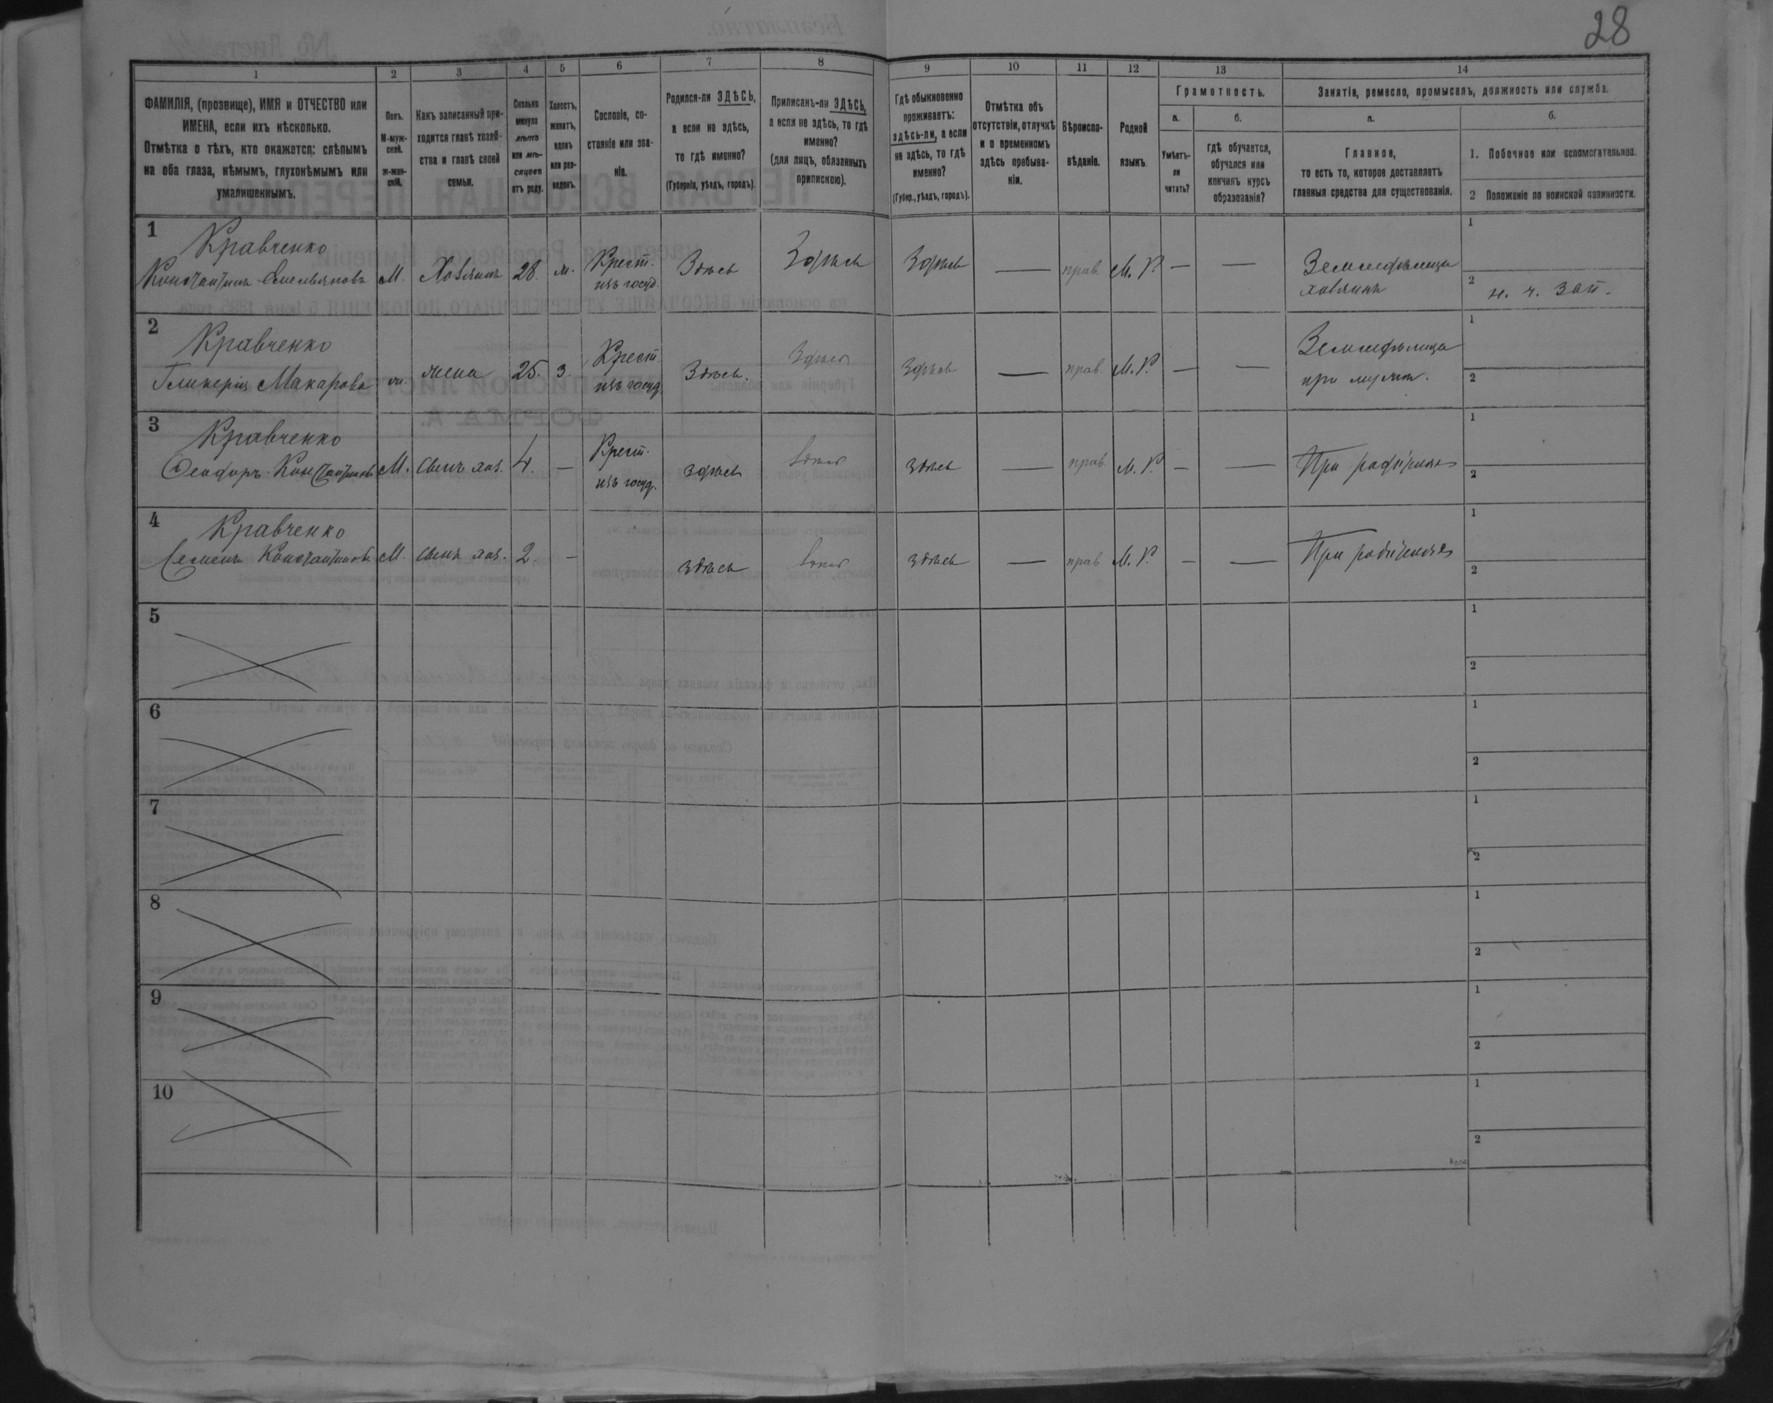 28
1 2 3 4 5 6 7 8 9 10 11 12 13 14
ФАМИЛІЯ, (прозвище), ИМЯ и ОТЧЕСТВО или
ИМЕНА, если ихъ нѣсколько.
Отмѣтка о тѣхъ, кто окажется: слѣпымъ
на оба глаза, нѣмымъ, глухонѣмымъ или
умалишеннымъ.
Полъ.
М-муж-
ской.
Ж-жен-
скій.
Какъ записанный при-
ходится главѣ хозяй-
ства и главѣ своей
семьи.
Сколько
минуло
лѣтъ
или мѣ-
сяцевъ
отъ роду.
Холостъ,
женатъ,
вдовъ
или раз-
веденъ.
Сословіе, со-
стояніе или зва-
ніе.
Родился-ли ЗДѢСЬ,
а если не здѣсь,
то гдѣ именно?
(Губернія, уѣздъ, городъ).
Приписанъ-ли ЗДѢСЬ,
а если не здѣсь, то гдѣ
именно?
(для лицъ, обязанныхъ
припискою).
Гдѣ обыкновенно
проживаетъ:
здѣсь-ли, а если
не здѣсь, то гдѣ
именно?
(Губер., уѣздъ, городъ).
Отмѣтка объ
отсутствіи, отлучкѣ
и о временномъ
здѣсь пребыва-
ніи.
Вѣроиспо-
вѣданіе.
Родной
языкъ.
Грамотность.
а.
Умѣетъ-
ли
читать?
б.
гдѣ обучается,
обучался или
кончилъ курсъ
образованія?
Занятіе, ремесло, промыселъ, должность или служба.
а.
Главное,
то есть то, которое доставляетъ
главныя средства для существованія.
б.
1. Побочное или вспомогательное.
2 Положеніе по воинской повинности.
1 Кравченко
Константинъ Емельяновъ М. Хозяинъ 28 ж. Крест. изъ госуд. Здѣсь Здѣсь Здѣсь — прав. М. Р. — — Земледѣлецъ хозяинъ
1
2 н. ч. зап.
2 Кравченко
Гликерія Макарова ж. жена 25. З. Крест. изъ госуд. Здѣсь. Здѣсь Здѣсь — прав. М. Р. — — Земледѣлица при мужѣ.
1
2
3 Кравченко
Ѳеодоръ Константиновъ М. сынъ хоз. 4. — Крест. изъ госуд. здѣсь здѣсь — прав. М. Р. — — При родителяхъ
1
2
4 Кравченко
Семенъ Константиновъ М. сынъ хоз. 2. — здѣсь здѣсь — прав. М. Р. — — При родителяхъ
1
2
5
1
2
6
1
2
7
1
2
8
1
2
9
1
2
10
1
2